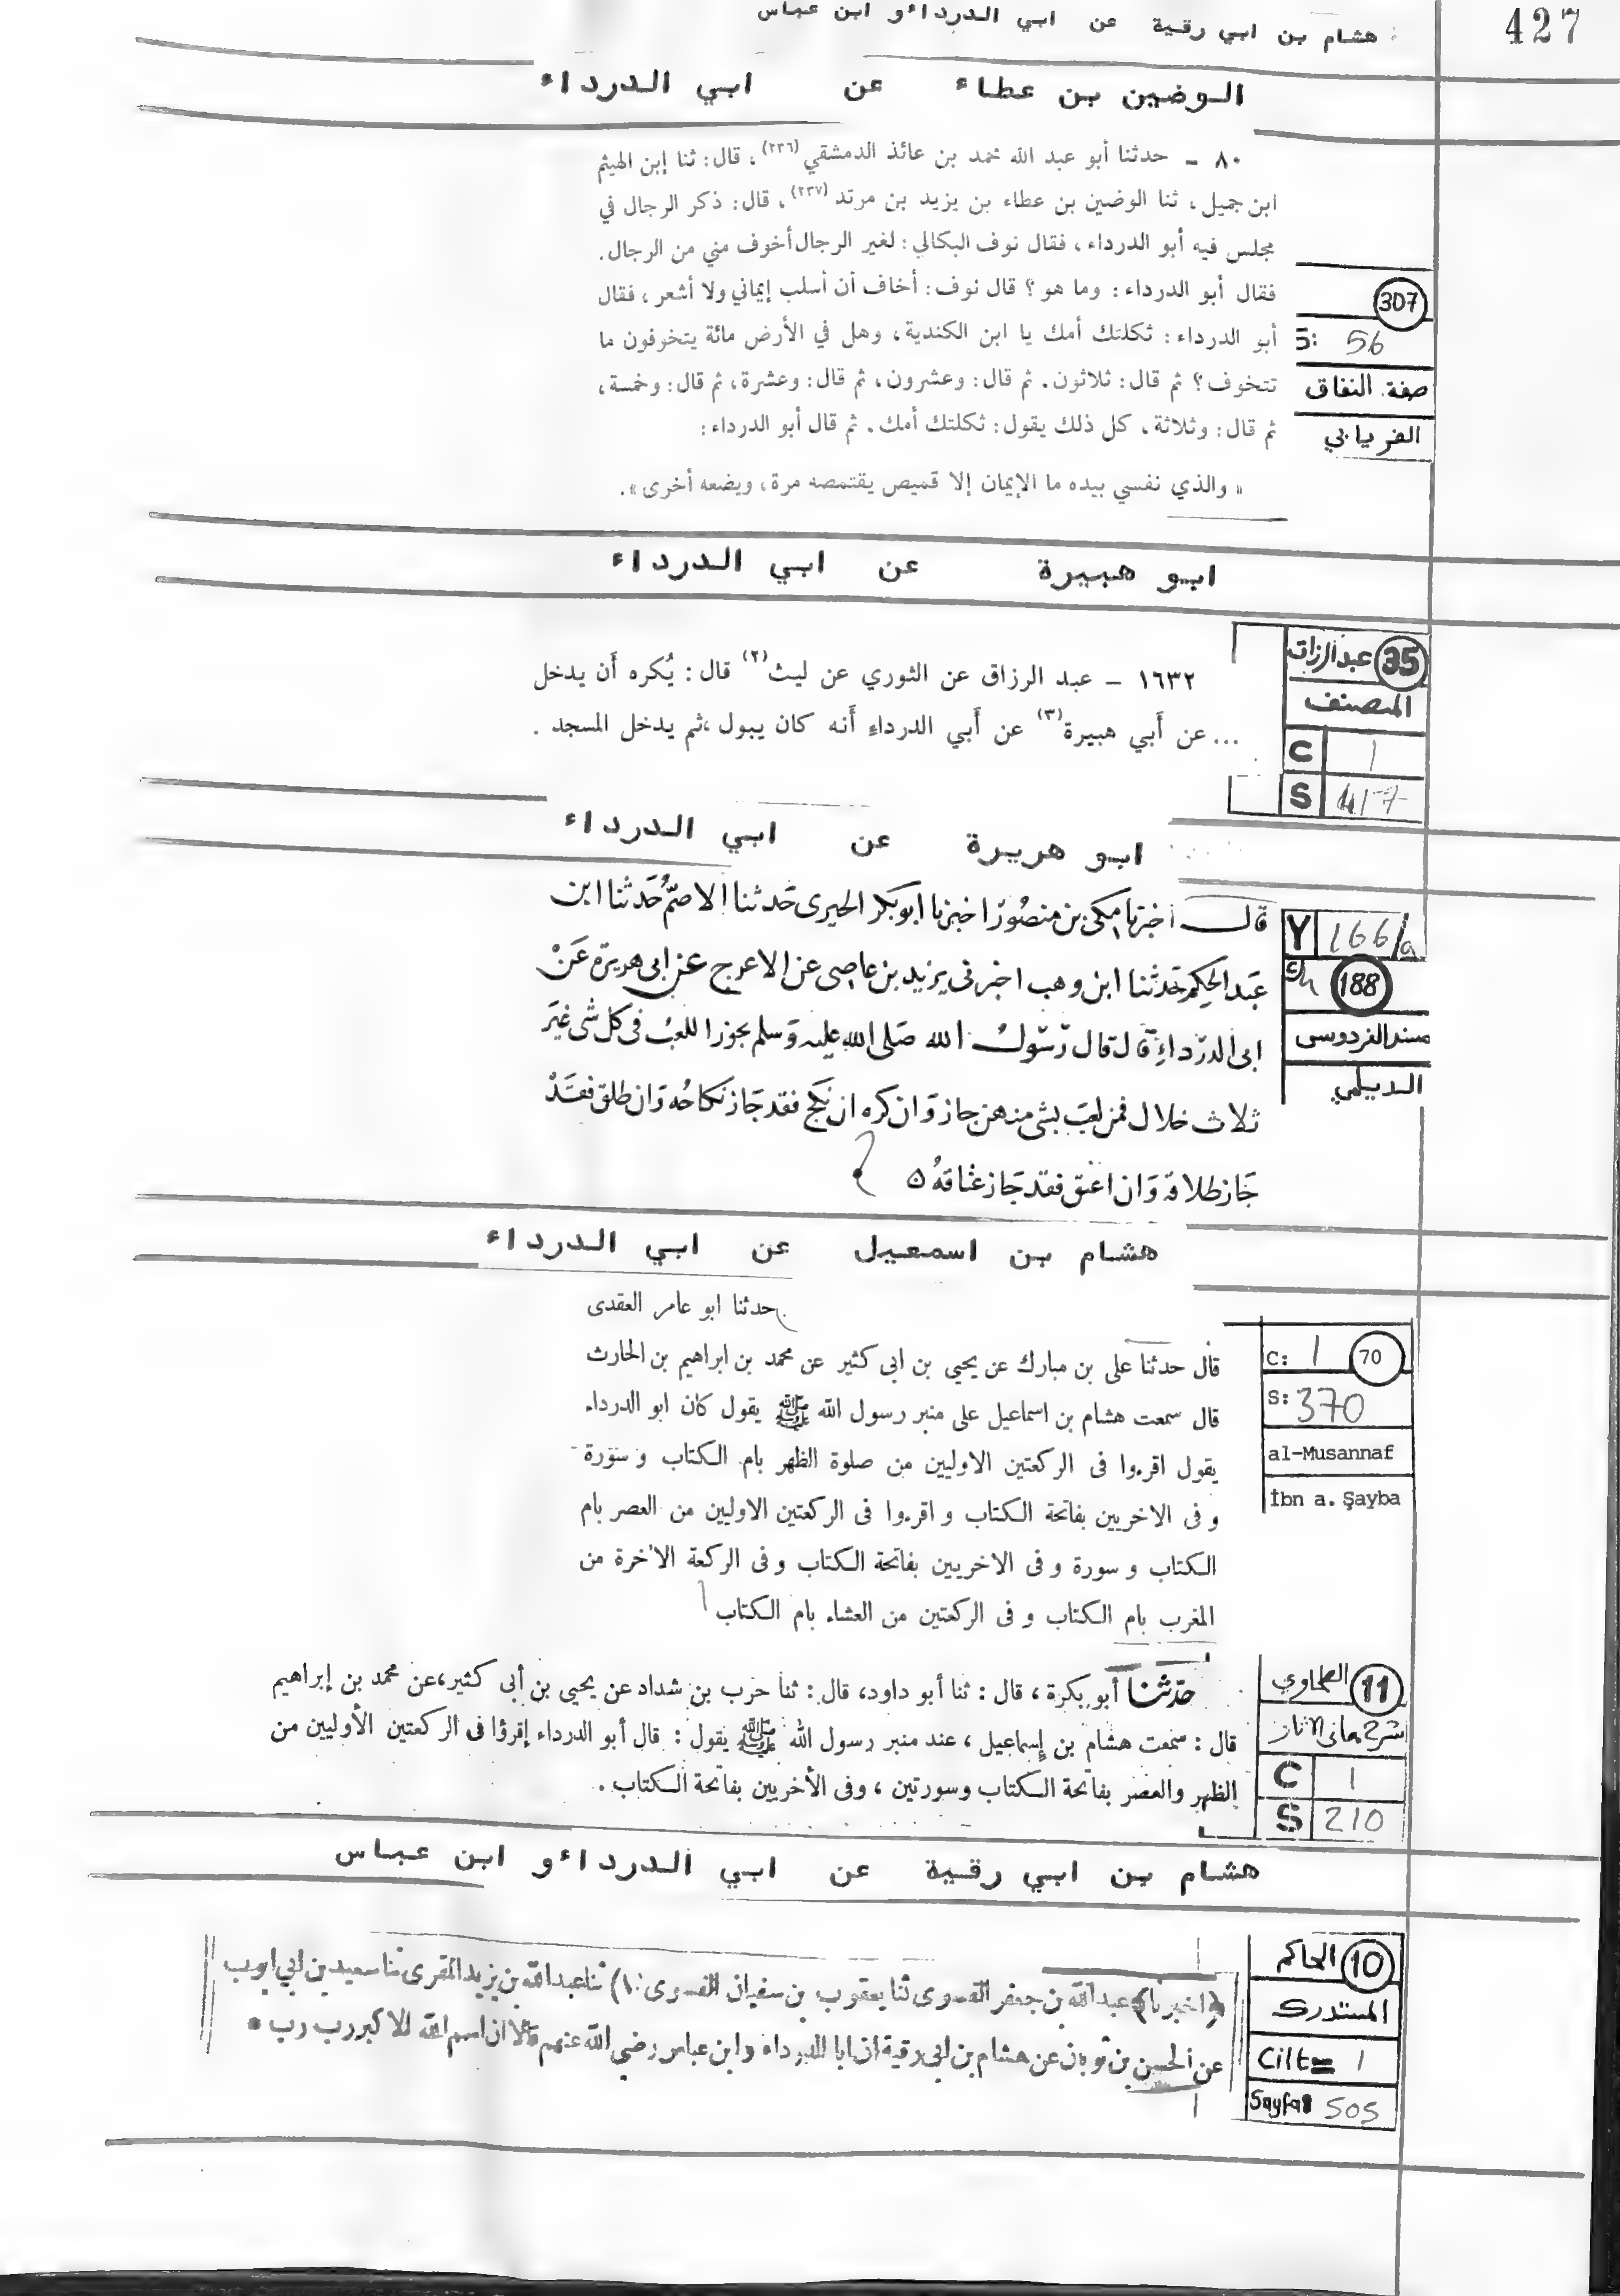 427
هشام بن ابي رقية عن ابي الدرداء و ابن عباس
الوضين بن عطاء عن ابي الدرداء
٨٠ - حدثنا أبو عبد الله محمد بن عائذ الدمشقي (٢٣٦)، قال: ثنا إبن الهيثم
ابن جميل، ثنا الوضين بن عطاء بن يزيد بن مرتد (٢٣٧)، قال: ذكر الرجال في
مجلس فيه أبو الدرداء، فقال نوف البكالي: لغير الرجال أخوف مني من الرجال.
فقال أبو الدرداء: وما هو؟ قال نوف: أخاف أن أسلب إيماني ولا أشعر، فقال
أبو الدرداء: ثكلتك أمك يا ابن الكندية، وهل في الأرض مائة يتخوفون ما
تتخوف؟ ثم قال: ثلاثون. ثم قال: وعشرون، ثم قال: وعشرة، ثم قال: وخمسة،
ثم قال: وثلاثة، كل ذلك يقول: ثكلتك أمك. ثم قال أبو الدرداء:
« والذي نفسي بيده ما الإيمان إلا قميص يقتمصه مرة، ويضعه أخرى ».
307
S: 56
صفة النفاق
الفريابي
ابو هبيرة عن ابي الدرداء
١٦٣٢ - عبد الرزاق عن الثوري عن ليث(٢) قال: يُكره أَن يدخل
... عن أَبي هبيرة(٣) عن أَبي الدرداءِ أَنه كان يبول، ثم يدخل المسجد .
35 عبدالرزاق
المصنف
C 1
S 417
ابو هريرة عن ابي الدرداء
قال اخبرنا مكى بن منصُور اخبرنا ابو بكر الحيرى حَدثنا الاصمُّ حَدثنا ابن
عَبد الحكم حَدثنا ابن وهب اخبرنى يزيد بن عاصى عن الاعرج عن ابى هريرة عَنْ
ابى الدرّداءِ قال قال رَسُولُ الله صَلى الله عليه وَسلم يجوز اللعبُ فى كل شى غيَر
ثلاث خلال فمن لعبَ بشى منهن جاز وَان كره ان نكح فقد جَاز نكاحُه وَان طلق فقَدْ
جَاز طلاقه وَان اعتق فقد جَاز عتاقهُ ٥
Y 166/a
188
مسند الفردوسى
الديلمي
هشام بن اسمعيل عن ابي الدرداء
حدثنا ابو عامر العقدى
قال حدثنا على بن مبارك عن يحيى بن ابى كثير عن محمد بن ابراهيم بن الحارث
قال سمعت هشام بن اسماعيل على منبر رسول الله ﷺ يقول كان ابو الدرداء
يقول اقرءوا فى الركعتين الاوليين من صلوة الظهر بام الكتاب و سورة
و فى الاخريين بفاتحة الكتاب و اقرءوا فى الركعتين الاوليين من العصر بام
الكتاب و سورة و فى الاخريين بفاتحة الكتاب و فى الركعة الاخرة من
المغرب بام الكتاب و فى الركعتين من العشاء بام الكتاب
C: 1 70
S: 370
al-Musannaf
İbn a. Şayba
حدّثنا أبو بكرة، قال: ثنا أبو داود، قال: ثنا حرب بن شداد عن يحيى بن أبى كثير، عن محمد بن إبراهيم
قال: سمعت هشام بن إسماعيل، عند منبر رسول الله ﷺ يقول: قال أبو الدرداء إقرؤا فى الركعتين الأوليين من
الظهر والعصر بفاتحة الكتاب وسورتين، وفى الأخريين بفاتحة الكتاب.
11 الطحاوي
شرح معانى الاثار
C 1
S 210
هشام بن ابي رقية عن ابي الدرداء و ابن عباس
﴿اخبرنا﴾ عبدالله بن جعفر الفسوى ثنا يعقوب بن سفيان الفسوى (١٠) ثنا عبدالله بن يزيد المقرى ثنا سعيد بن ابي ايوب
عن الحسن بن ثوبان عن هشام بن ابي رقية ان ابا الدرداء وابن عباس رضي الله عنهم قالا ان اسم الله الاكبر رب رب •
10 الحاكم
المستدرك
Cilt= 1
Sayfa 505